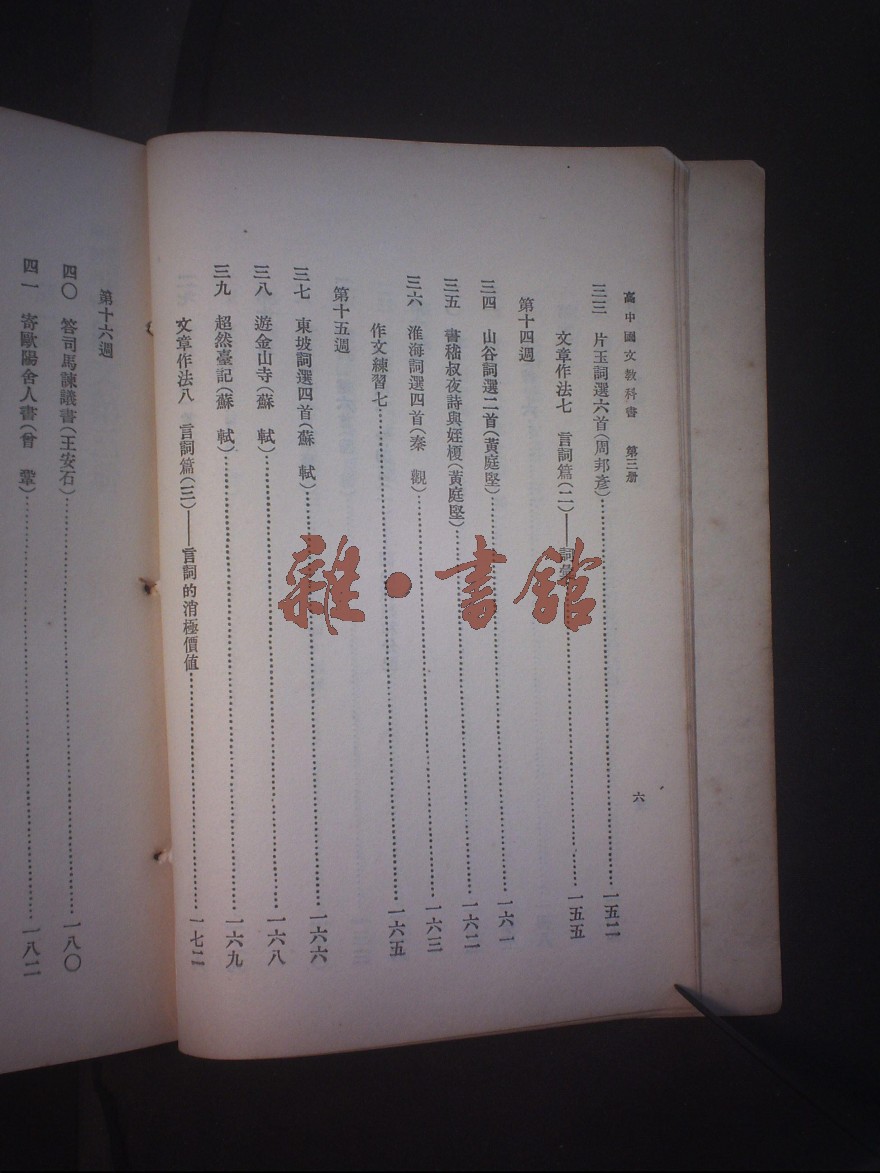 高中國文教科書　第三册
三三　片玉詞選六首（周邦彥）⋯⋯一五二
文章作法七　言詞篇（二）——詞彙⋯⋯一五五
第十四週
三四　山谷詞選二首（黃庭堅）⋯⋯一六一
三五　書嵇叔夜詩與姪榎（黃庭堅）⋯⋯一六二
三六　淮海詞選四首（秦　觀）⋯⋯一六三
作文練習七⋯⋯一六五
第十五週
三七　東坡詞選四首（蘇　軾）⋯⋯一六六
三八　遊金山寺（蘇　軾）⋯⋯一六八
三九　超然臺記（蘇　軾）⋯⋯一六九
文章作法八　言詞篇（三）——言詞的消極價值⋯⋯一七二
六
第十六週
四〇　答司馬諫議書（王安石）⋯⋯一八〇
四一　寄歐陽舍人書（曾　鞏）⋯⋯一八二
雜·書館